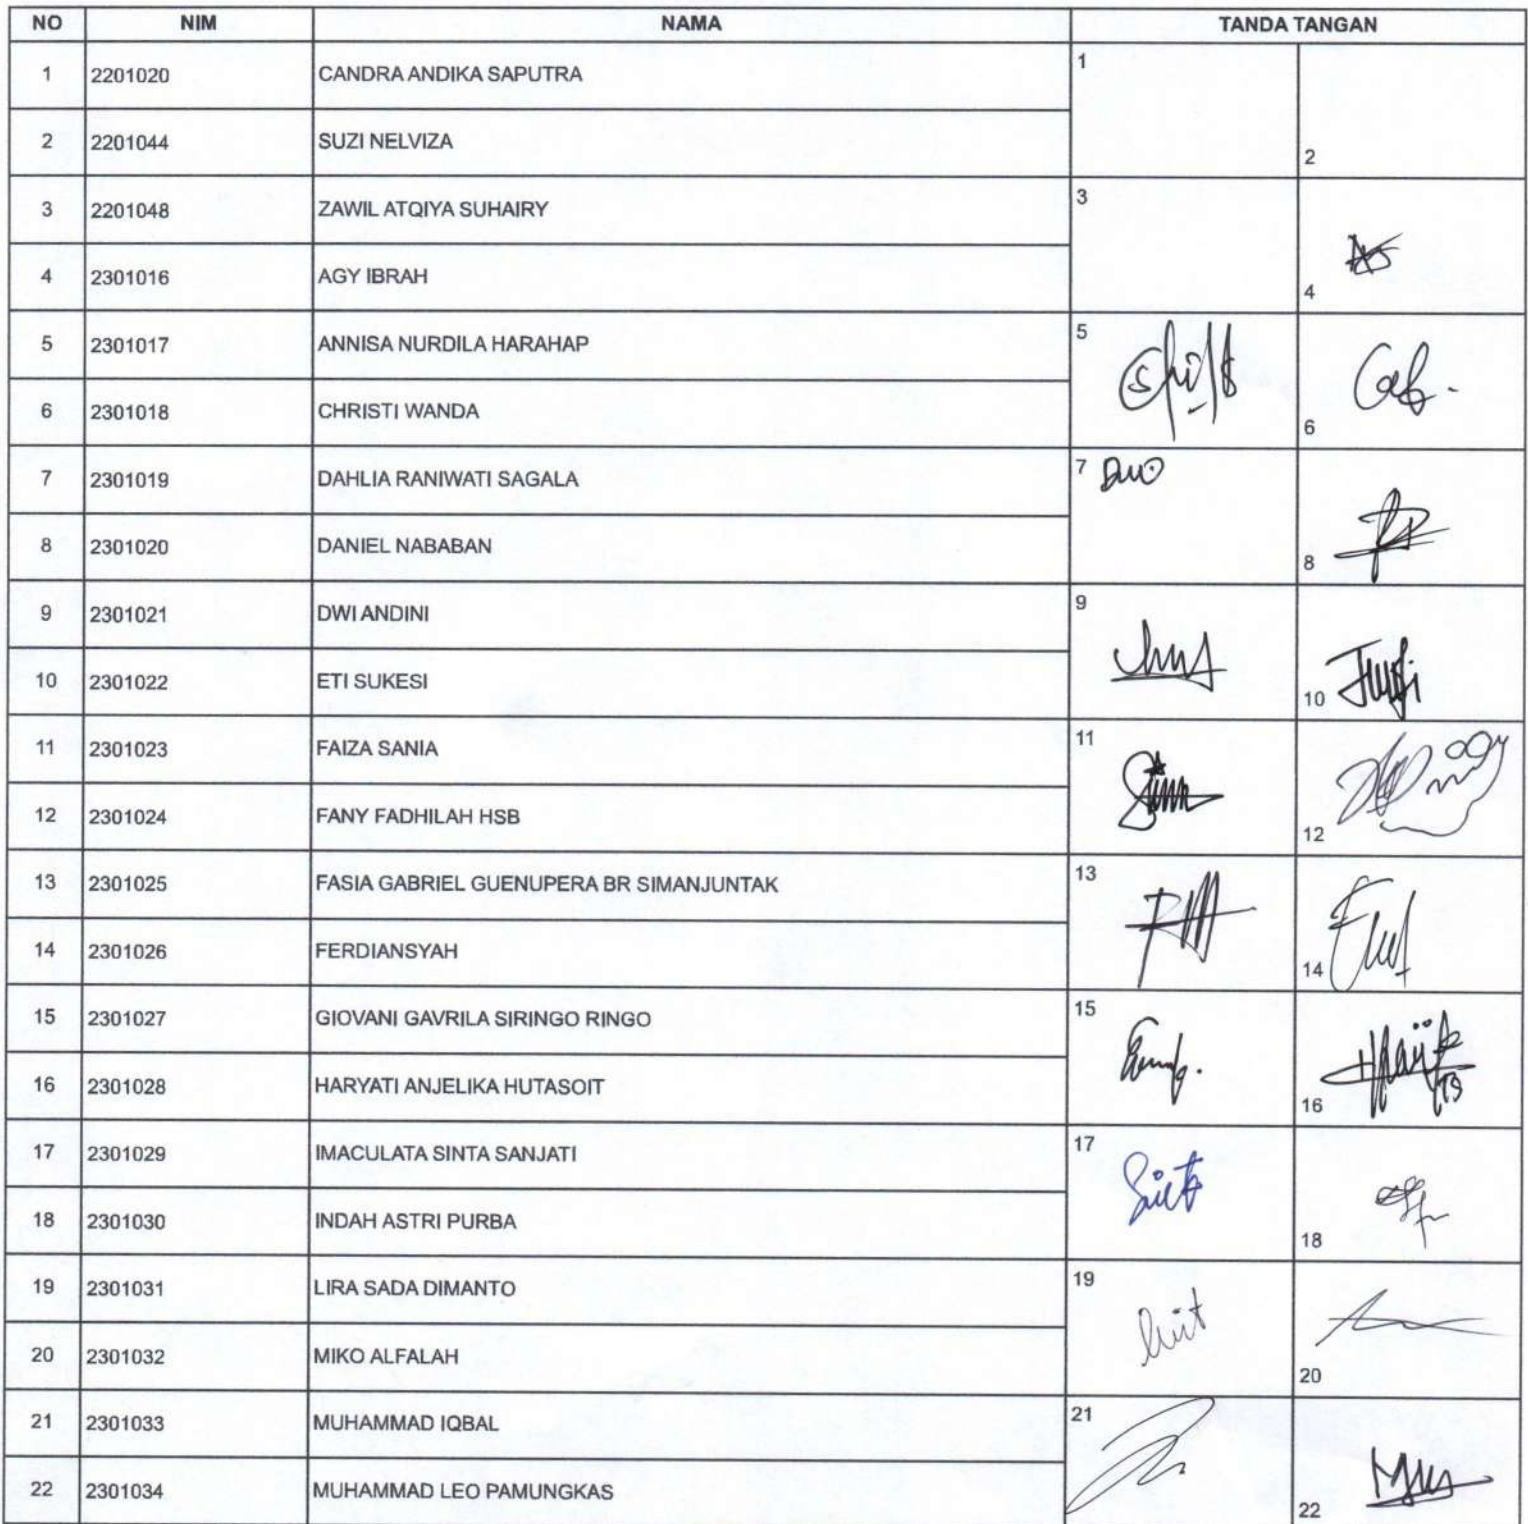 NO NIM NAMA TANDA TANGAN
1 2201020 CANDRA ANDIKA SAPUTRA 1
2 2201044 SUZI NELVIZA 2
3 2201048 ZAWIL ATQIYA SUHAIRY 3
4 2301016 AGY IBRAH 4
5 2301017 ANNISA NURDILA HARAHAP 5
6 2301018 CHRISTI WANDA 6
7 2301019 DAHLIA RANIWATI SAGALA 7
8 2301020 DANIEL NABABAN 8
9 2301021 DWI ANDINI 9
10 2301022 ETI SUKESI 10
11 2301023 FAIZA SANIA 11
12 2301024 FANY FADHILAH HSB 12
13 2301025 FASIA GABRIEL GUENUPERA BR SIMANJUNTAK 13
14 2301026 FERDIANSYAH 14
15 2301027 GIOVANI GAVRILA SIRINGO RINGO 15
16 2301028 HARYATI ANJELIKA HUTASOIT 16
17 2301029 IMACULATA SINTA SANJATI 17
18 2301030 INDAH ASTRI PURBA 18
19 2301031 LIRA SADA DIMANTO 19
20 2301032 MIKO ALFALAH 20
21 2301033 MUHAMMAD IQBAL 21
22 2301034 MUHAMMAD LEO PAMUNGKAS 22